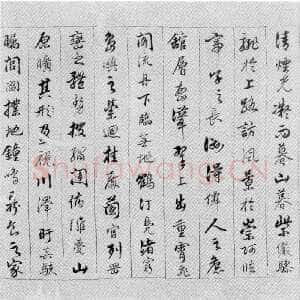 清煙光凝而暮山紫儼驂
騑於上路訪風景於崇阿臨
帝子之長洲得僊人之舊
館層巒聳翠上出重霄飛
閣流丹下臨無地鶴汀鳧渚窮
島嶼之縈迴桂殿蘭宮列岡
巒之體勢披繡闥俯雕甍山
原曠其盈視川澤盱其駭
矚閭閻撲地鐘鳴鼎食之家